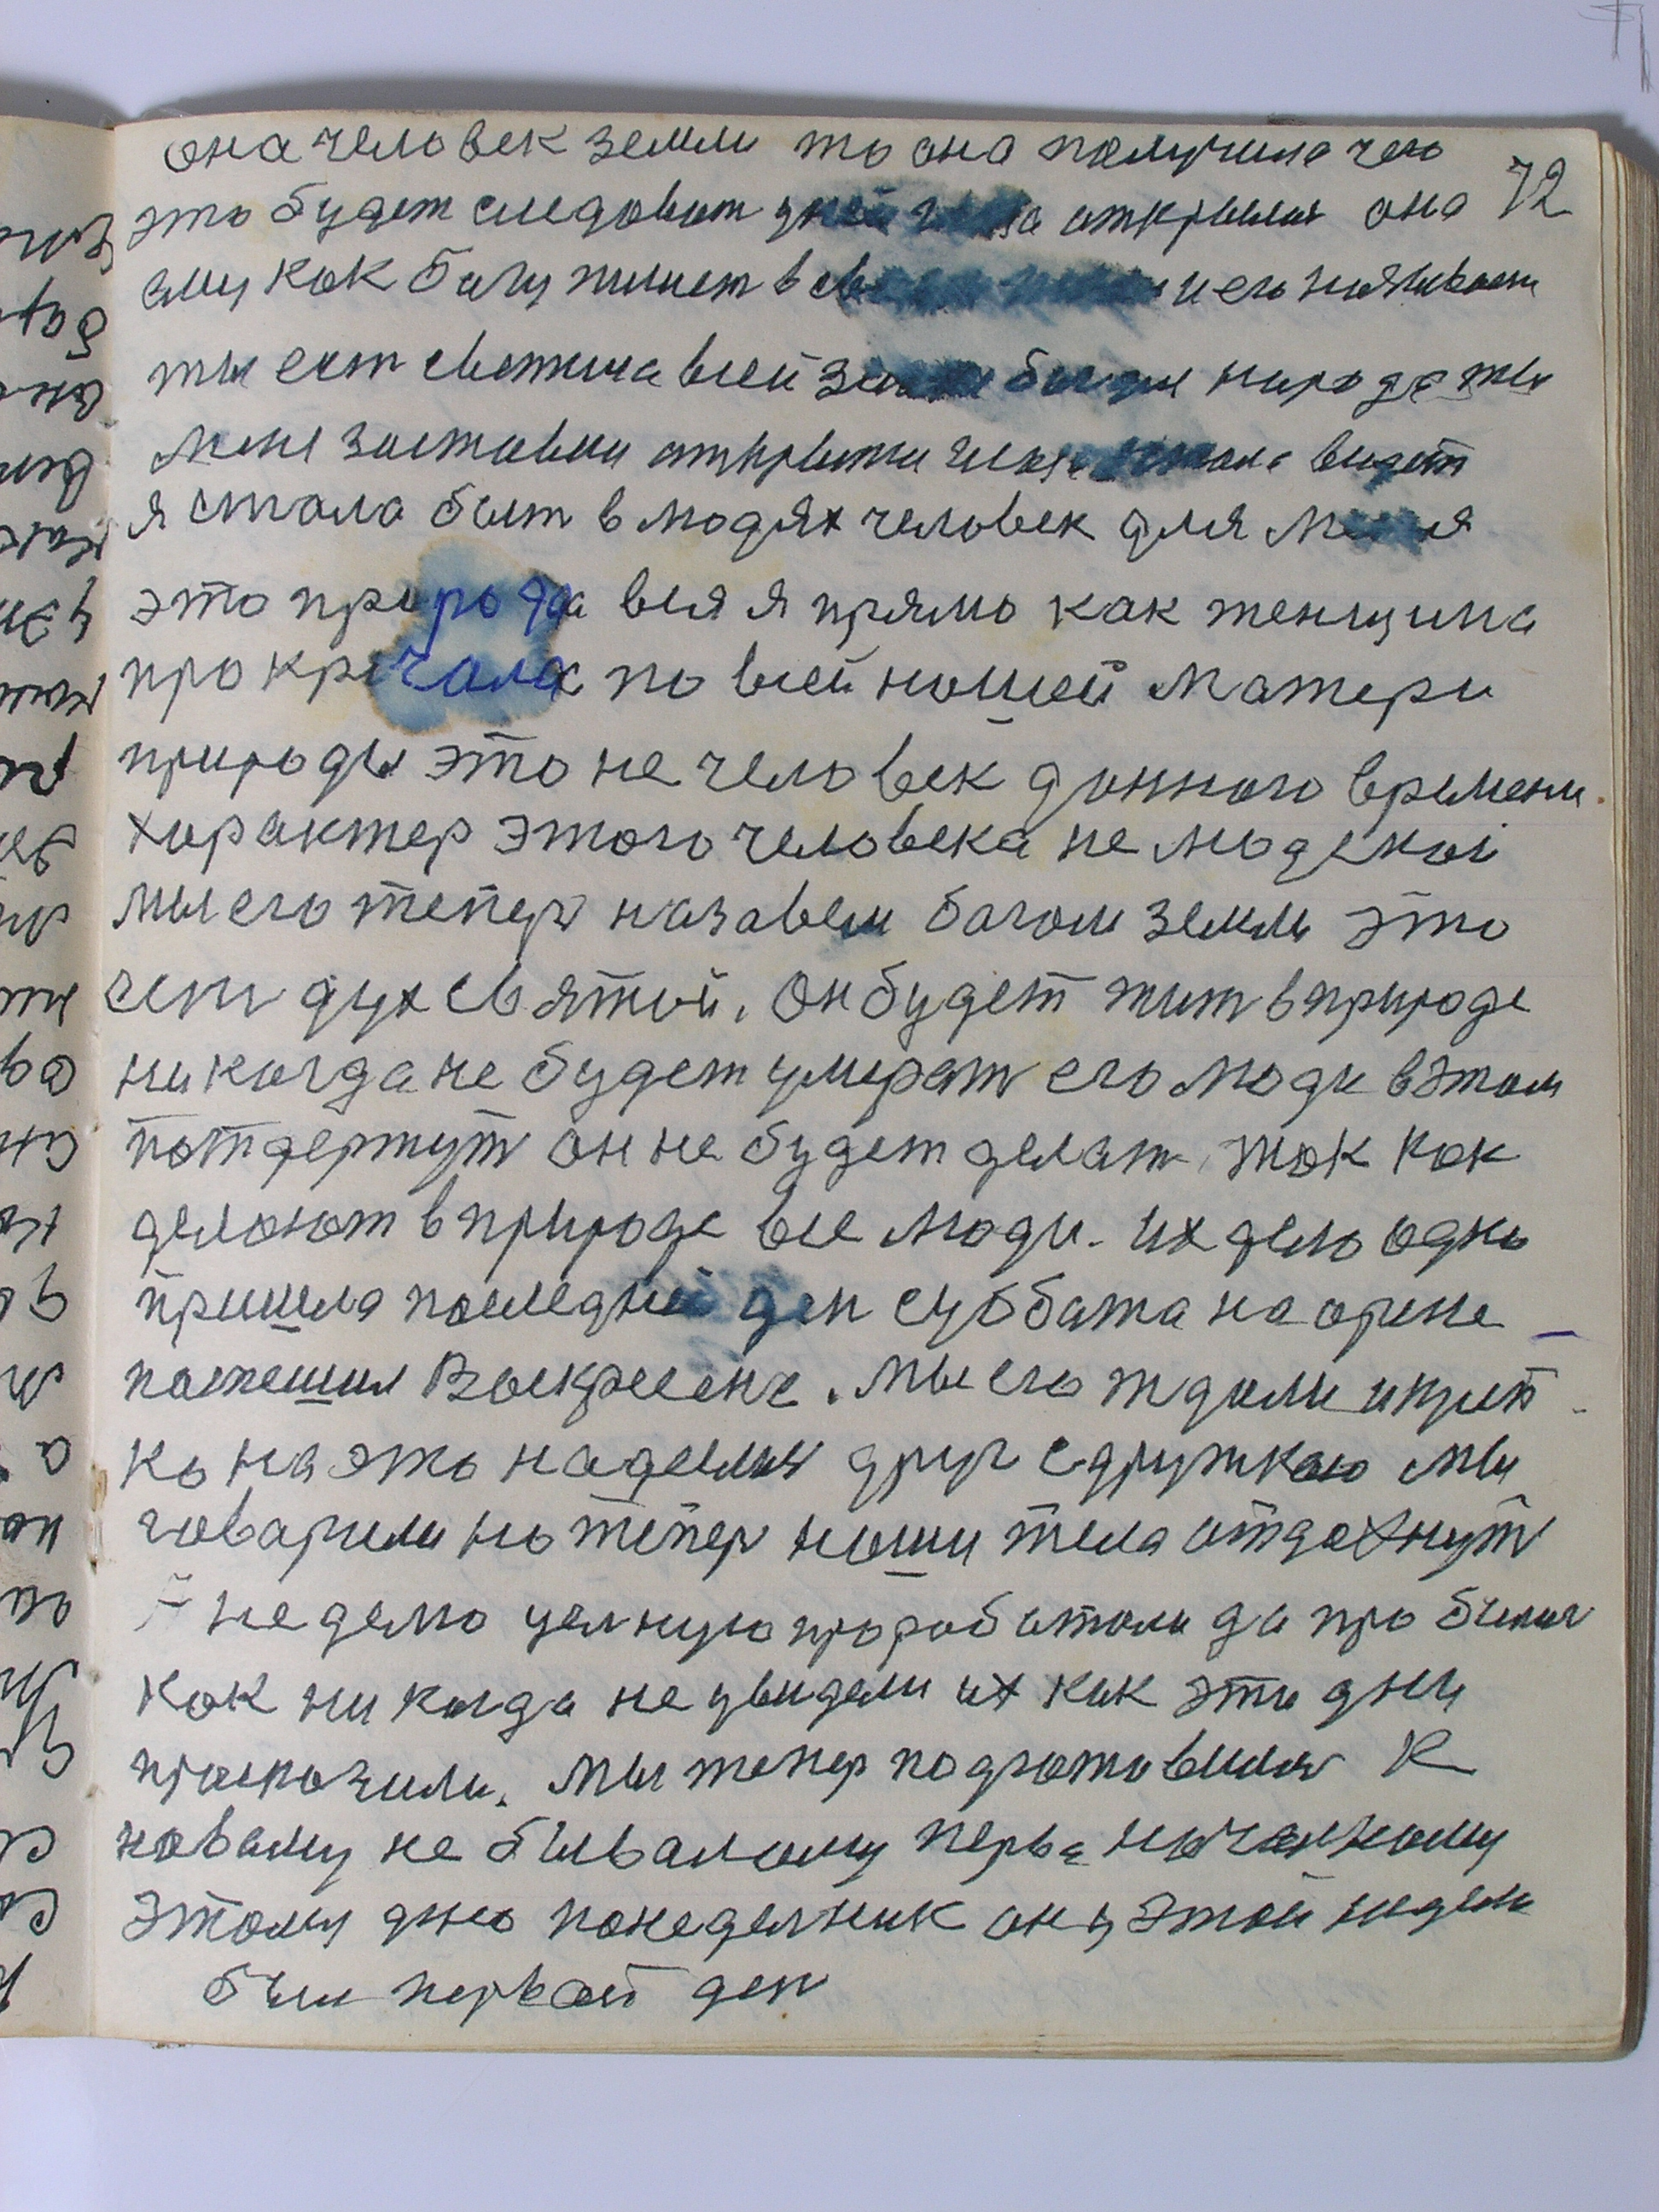 она человек земли то она получила чего
72
это будет следоват у ней глаза открылис она
ему как богу пишет в св и его называет
ты ест светила всей земли бог для народа ты
мене заставил открыти глаза стала видет
я стала быт в людях человек для меня
это природа вся я прямо как женщина
прокричала по всей нашей матери
природы это не человек данного времени.
характер этого человека не людской
мы его тепер назавем богом земли это
ест дух святой. Он будет жит в природе
никогда не будет умират его люди в этом
потдержут он не будет делат так как
делают в природе все люди. их дело одно
пришла последней ден суббата на арене
поспешил Воскресене. мы его ждали и крет
ко на это надеялис друг с дружкаю мы
говарили но тепер наши тела отдахнут
неделю целную проработали да пробылис
как никогда не увидели их как эти дни
проскочили. мы тепер подготовилис к
новаму не бывалому перваначалному
этому дню понеделник он у этой недели
был первай ден